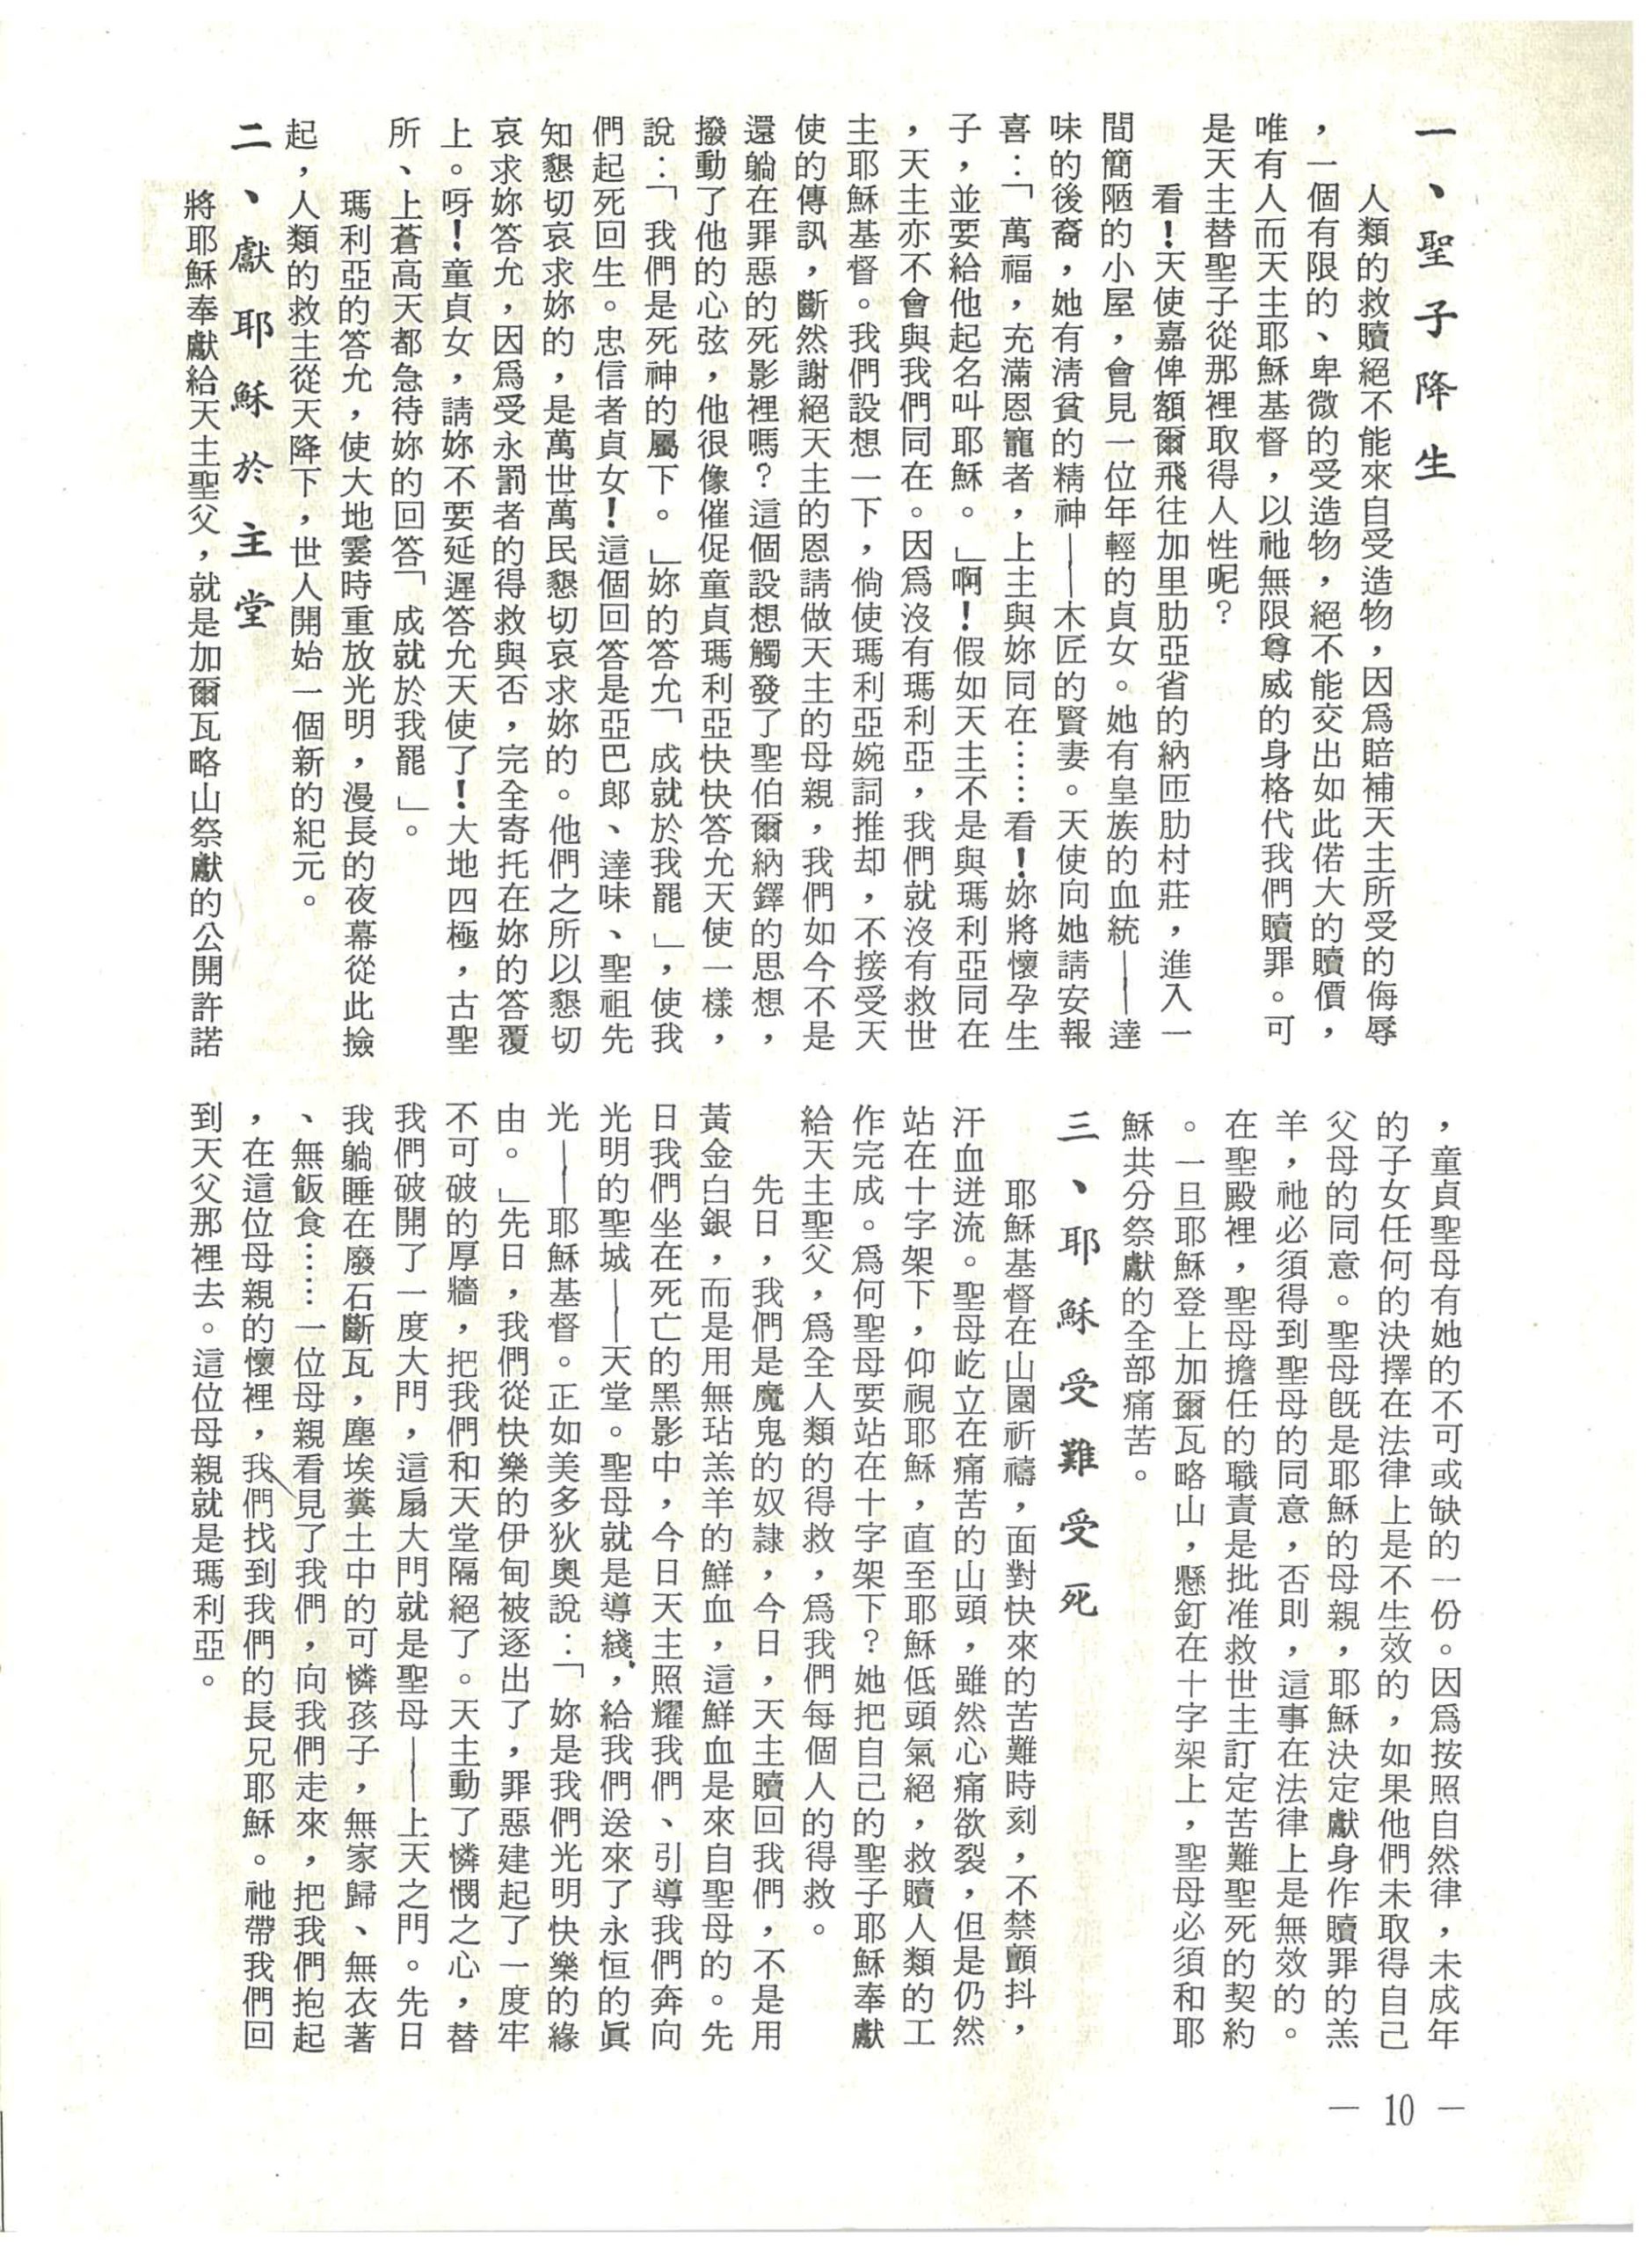 一、聖子降生
人類的救贖絕不能來自受造物，因爲賠補天主所受的侮辱
，一個有限的、卑微的受造物，絕不能交出如此偌大的贖價，
唯有人而天主耶穌基督，以祂無限尊威的身格代我們贖罪。可
是天主替聖子從那裡取得人性呢？
看！天使嘉俾額爾飛往加里肋亞省的納匝肋村莊，進入一
間簡陋的小屋，會見一位年輕的貞女。她有皇族的血統——達
味的後裔，她有淸貧的精神——木匠的賢妻。天使向她請安報
喜：「萬福，充滿恩寵者，上主與妳同在……看！妳將懷孕生
子，並要給他起名叫耶穌。」啊！假如天主不是與瑪利亞同在
，天主亦不會與我們同在。因爲沒有瑪利亞，我們就沒有救世
主耶穌基督。我們設想一下，倘使瑪利亞婉詞推却，不接受天
使的傳訊，斷然謝絕天主的恩請做天主的母親，我們如今不是
還躺在罪惡的死影裡嗎？這個設想觸發了聖伯爾納鐸的思想，
撥動了他的心弦，他很像催促童貞瑪利亞快快答允天使一樣，
說：「我們是死神的屬下。」妳的答允「成就於我罷」，使我
們起死回生。忠信者貞女！這個回答是亞巴郎、達味、聖祖先
知懇切哀求妳的，是萬世萬民懇切哀求妳的。他們之所以懇切
哀求妳答允，因爲受永罰者的得救與否，完全寄托在妳的答覆
上。呀！童貞女，請妳不要延遲答允天使了！大地四極，古聖
所、上蒼高天都急待妳的回答「成就於我罷」。
瑪利亞的答允，使大地霎時重放光明，漫長的夜幕從此撿
起，人類的救主從天降下，世人開始一個新的紀元。
二、獻耶穌於主堂
將耶穌奉獻給天主聖父，就是加爾瓦略山祭獻的公開許諾
，童貞聖母有她的不可或缺的一份。因爲按照自然律，未成年
的子女任何的決擇在法律上是不生效的，如果他們未取得自己
父母的同意。聖母旣是耶穌的母親，耶穌決定獻身作贖罪的羔
羊，祂必須得到聖母的同意，否則，這事在法律上是無效的。
在聖殿裡，聖母擔任的職責是批准救世主訂定苦難聖死的契約
。一旦耶穌登上加爾瓦略山，懸釘在十字架上，聖母必須和耶
穌共分祭獻的全部痛苦。
三、耶穌受難受死
耶穌基督在山園祈禱，面對快來的苦難時刻，不禁顫抖，
汗血迸流。聖母屹立在痛苦的山頭，雖然心痛欲裂，但是仍然
站在十字架下，仰視耶穌，直至耶穌低頭氣絕，救贖人類的工
作完成。爲何聖母要站在十字架下？她把自己的聖子耶穌奉獻
給天主聖父，爲全人類的得救，爲我們每個人的得救。
先日，我們是魔鬼的奴隸，今日，天主贖回我們，不是用
黃金白銀，而是用無玷羔羊的鮮血，這鮮血是來自聖母的。先
日我們坐在死亡的黑影中，今日天主照耀我們、引導我們奔向
光明的聖城——天堂。聖母就是導綫，給我們送來了永恒的眞
光——耶穌基督。正如美多狄奧說：「妳是我們光明快樂的緣
由。」先日，我們從快樂的伊甸被逐出了，罪惡建起了一度牢
不可破的厚牆，把我們和天堂隔絕了。天主動了憐憫之心，替
我們破開了一度大門，這扇大門就是聖母——上天之門。先日
我躺睡在廢石斷瓦，塵埃糞土中的可憐孩子，無家歸、無衣著
、無飯食……一位母親看見了我們，向我們走來，把我們抱起
，在這位母親的懷裡，我們找到我們的長兄耶穌。祂帶我們回
到天父那裡去。這位母親就是瑪利亞。
— 10 —